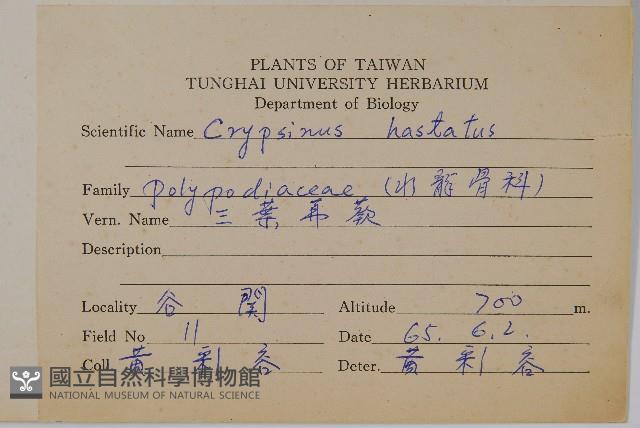 PLANTS OF TAIWAN
TUNGHAI UNIVERSITY HERBARIUM
Department of Biology
Scientific Name Crypsinus hastatus
Family Polypodiaceae (水龍骨科)
Vern. Name 三葉茀蕨
Description
Locality 谷關
Altitude 700 m.
Field No 11
Date 65. 6. 2.
Coll 黃彩容
Deter. 黃彩容
國立自然科學博物館
NATIONAL MUSEUM OF NATURAL SCIENCE